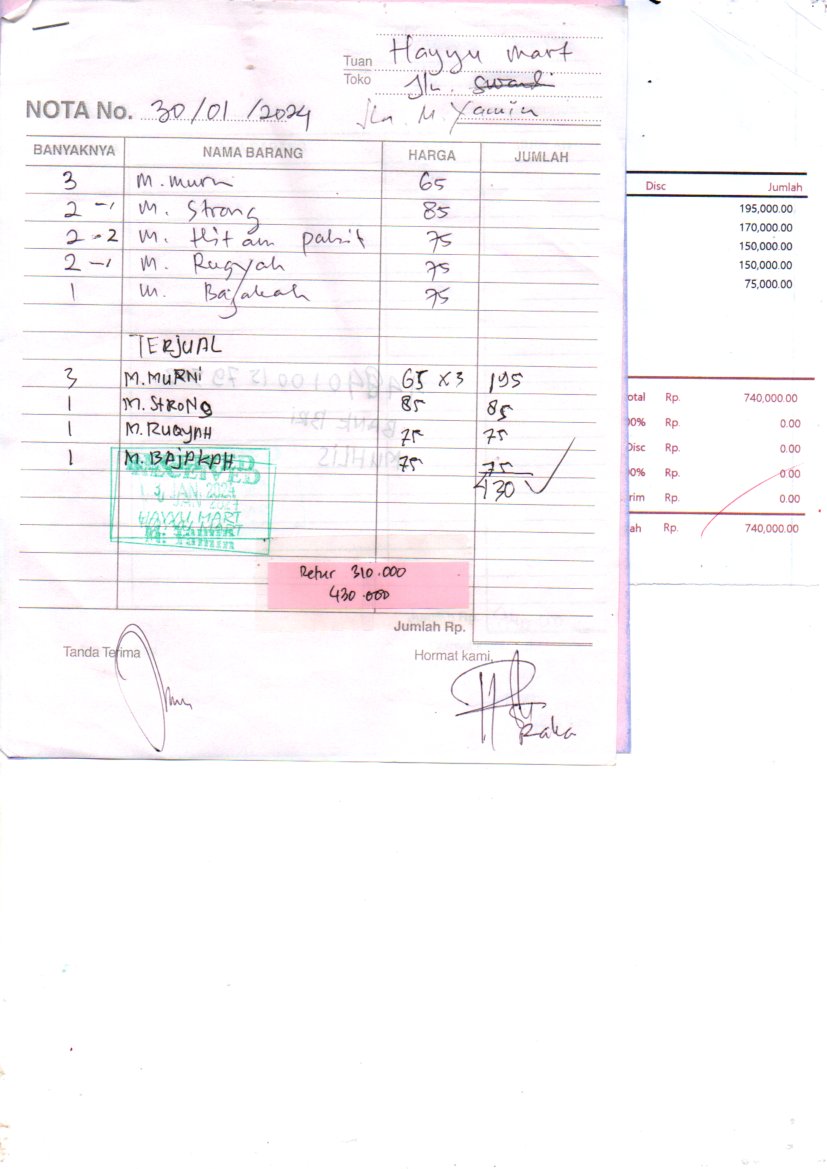 Tuan Hayyu mart
Toko Jln. Swadi
Jln. M. Yamin
NOTA No. 30/01/2024
BANYAKNYA NAMA BARANG HARGA JUMLAH
3 M. murni 65
2 -1 M. Strong 85
2 -2 M. Hitam pahit 75
2 -1 M. Ruqyah 75
1 M. Bajakah 75
TERJUAL
3 M. MURNI 65 x 3 195
1 M. STRONG 85 85
1 M. RUQYAH 75 75
1 M. BAJAKAH 75 75
430
RECEIVED
HAYYU MART
Retur 310.000
430.000
Jumlah Rp.
Tanda Terima Hormat kami,
Raka
Disc Jumlah
195,000.00
170,000.00
150,000.00
150,000.00
75,000.00
otal Rp. 740,000.00
0% Rp. 0.00
Disc Rp. 0.00
0% Rp. 0.00
rim Rp. 0.00
ah Rp. 740,000.00